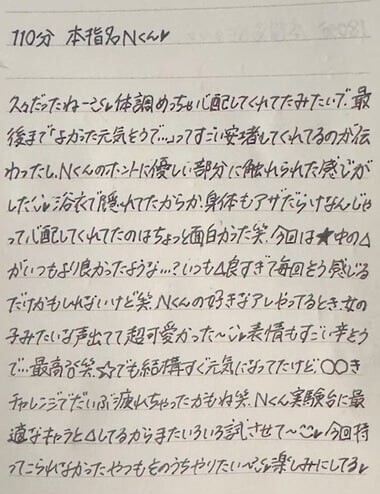 110分 本指名Nくん♥
久々だったねー♥体調めっちゃ心配してくれてたみたいで、最
後まで「よかった元気そうで…」ってすごい安堵してくれてるのが伝
わったし、Nくんのホントに優しい部分に触れられた感じが
した♥浴衣で隠れてたからか身体もアザだらけなんじゃ
って心配してくれてたのはちょっと面白かった笑 今回は★中の△
がいつもより良かったような…?いつも△良すぎて毎回そう感じる
だけかもしれないけど笑、Nくんの好きなアレやってるとき、女の
子みたいな声出てて超可愛かった〜♥表情もすごい辛そう
で…最高な笑、☆でも結構すぐ元気になってたけど、○○き
チャレンジでだいぶ疲れちゃったかもね笑、Nくん実験台に最
適なキャラと△してるからまたいろいろ試させて〜♥今回持
ってこられなかったやつもそのうちやりたい〜♥楽しみにしてる♥